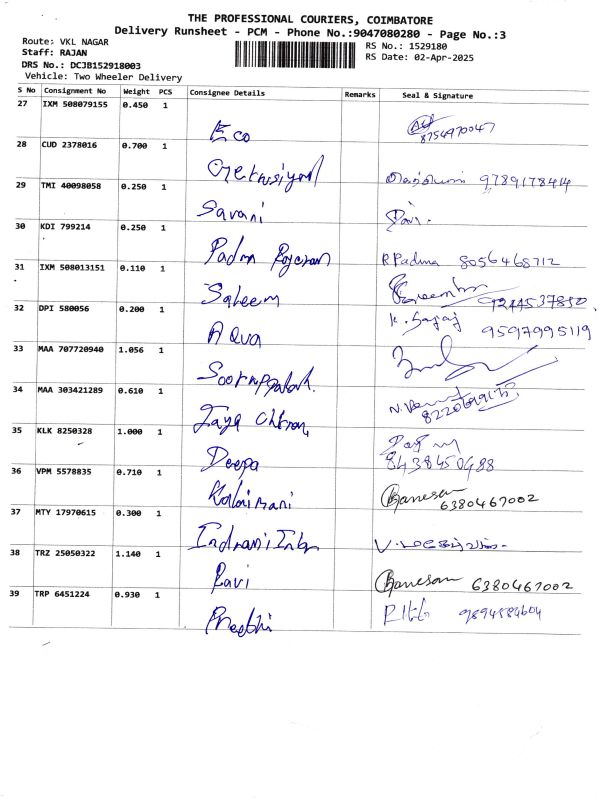 THE PROFESSIONAL COURIERS, COIMBATORE
Delivery Runsheet - PCM - Phone No.:9047080280 - Page No.:3
Route: VKL NAGAR
Staff: RAJAN
DRS No.: DCJB152918003
Vehicle: Two Wheeler Delivery
RS No.: 1529180
RS Date: 02-Apr-2025
S No Consignment No Weight PCS Consignee Details Remarks Seal & Signature
27 IXM 508079155 0.450 1
Eco 8754970047
28 CUD 2378016 0.700 1
9789178414
29 TMI 40098058 0.250 1
Savani
30 KDI 799214 0.250 1
Padma R Padma 8056468712
31 IXM 508013151 0.110 1
Saleem 9244537850
32 DPI 580056 0.200 1
AQua 9597995119
33 MAA 707720940 1.056 1
34 MAA 303421289 0.610 1
Jaya
35 KLK 8250328 1.000 1
Deepa 8438450488
36 VPM 5578835 0.710 1
Kalaimani Ganesan 6380467002
37 MTY 17970615 0.300 1
Indrani
38 TRZ 25050322 1.140 1
Ravi Ganesan 6380467002
39 TRP 6451224 0.930 1
Preethi 9894584604